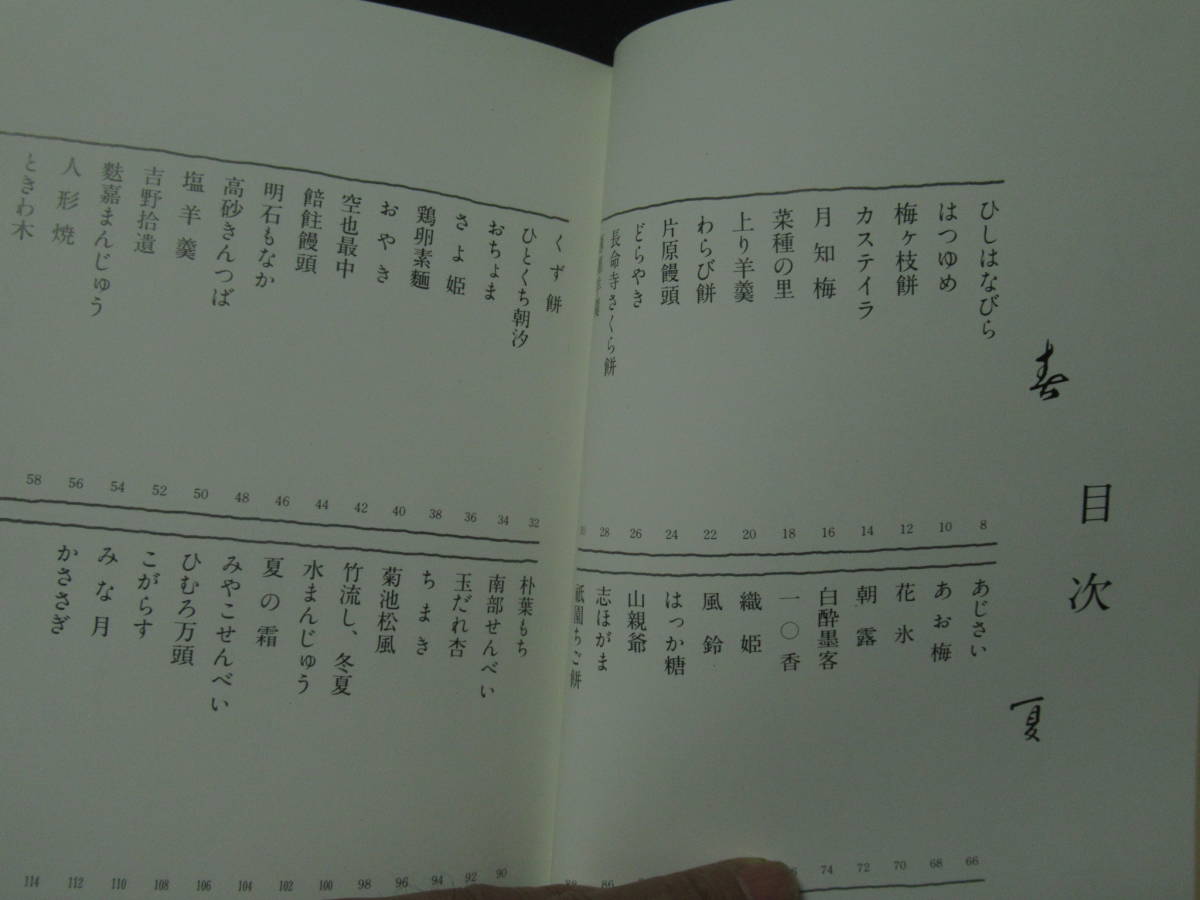 目次
春
ひしはなびら 8
はつゆめ 10
梅ヶ枝餅 12
カステイラ 14
月知梅 16
菜種の里 18
上り羊羹 20
わらび餅 22
片原饅頭 24
どらやき 26
長命寺さくら餅 28
くず餅 32
ひとくち朝汐 34
おちょま 36
さよ姫 38
鶏卵素麺 40
おやき 42
空也最中 44
餢飳饅頭 46
明石もなか 48
高砂きんつば 50
塩羊羹 52
吉野拾遺 54
麩嘉まんじゅう 56
人形焼 58
ときわ木
夏
あじさい 66
あお梅 68
花氷 70
朝露 72
白酔墨客 74
一〇香
織姫
風鈴
はっか糖
山親爺
志ほがま 86
祇園ちご餅 88
朴葉もち 90
南部せんべい 92
玉だれ杏 94
ちまき 96
菊池松風 98
竹流し、冬夏 100
水まんじゅう 102
夏の霜 104
みやこせんべい 106
ひむろ万頭 108
こがらす 110
みな月 112
かささぎ 114